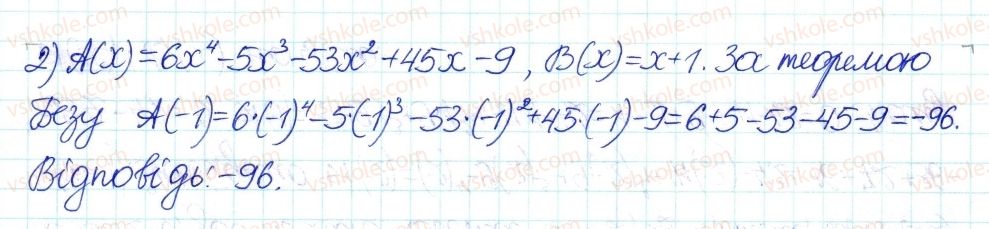 2) A(x)=6x⁴-5x³-53x²+45x-9, B(x)=x+1. За теоремою
Безу A(-1)=6·(-1)⁴-5·(-1)³-53·(-1)²+45·(-1)-9=6+5-53-45-9=-96.
Відповідь: -96.